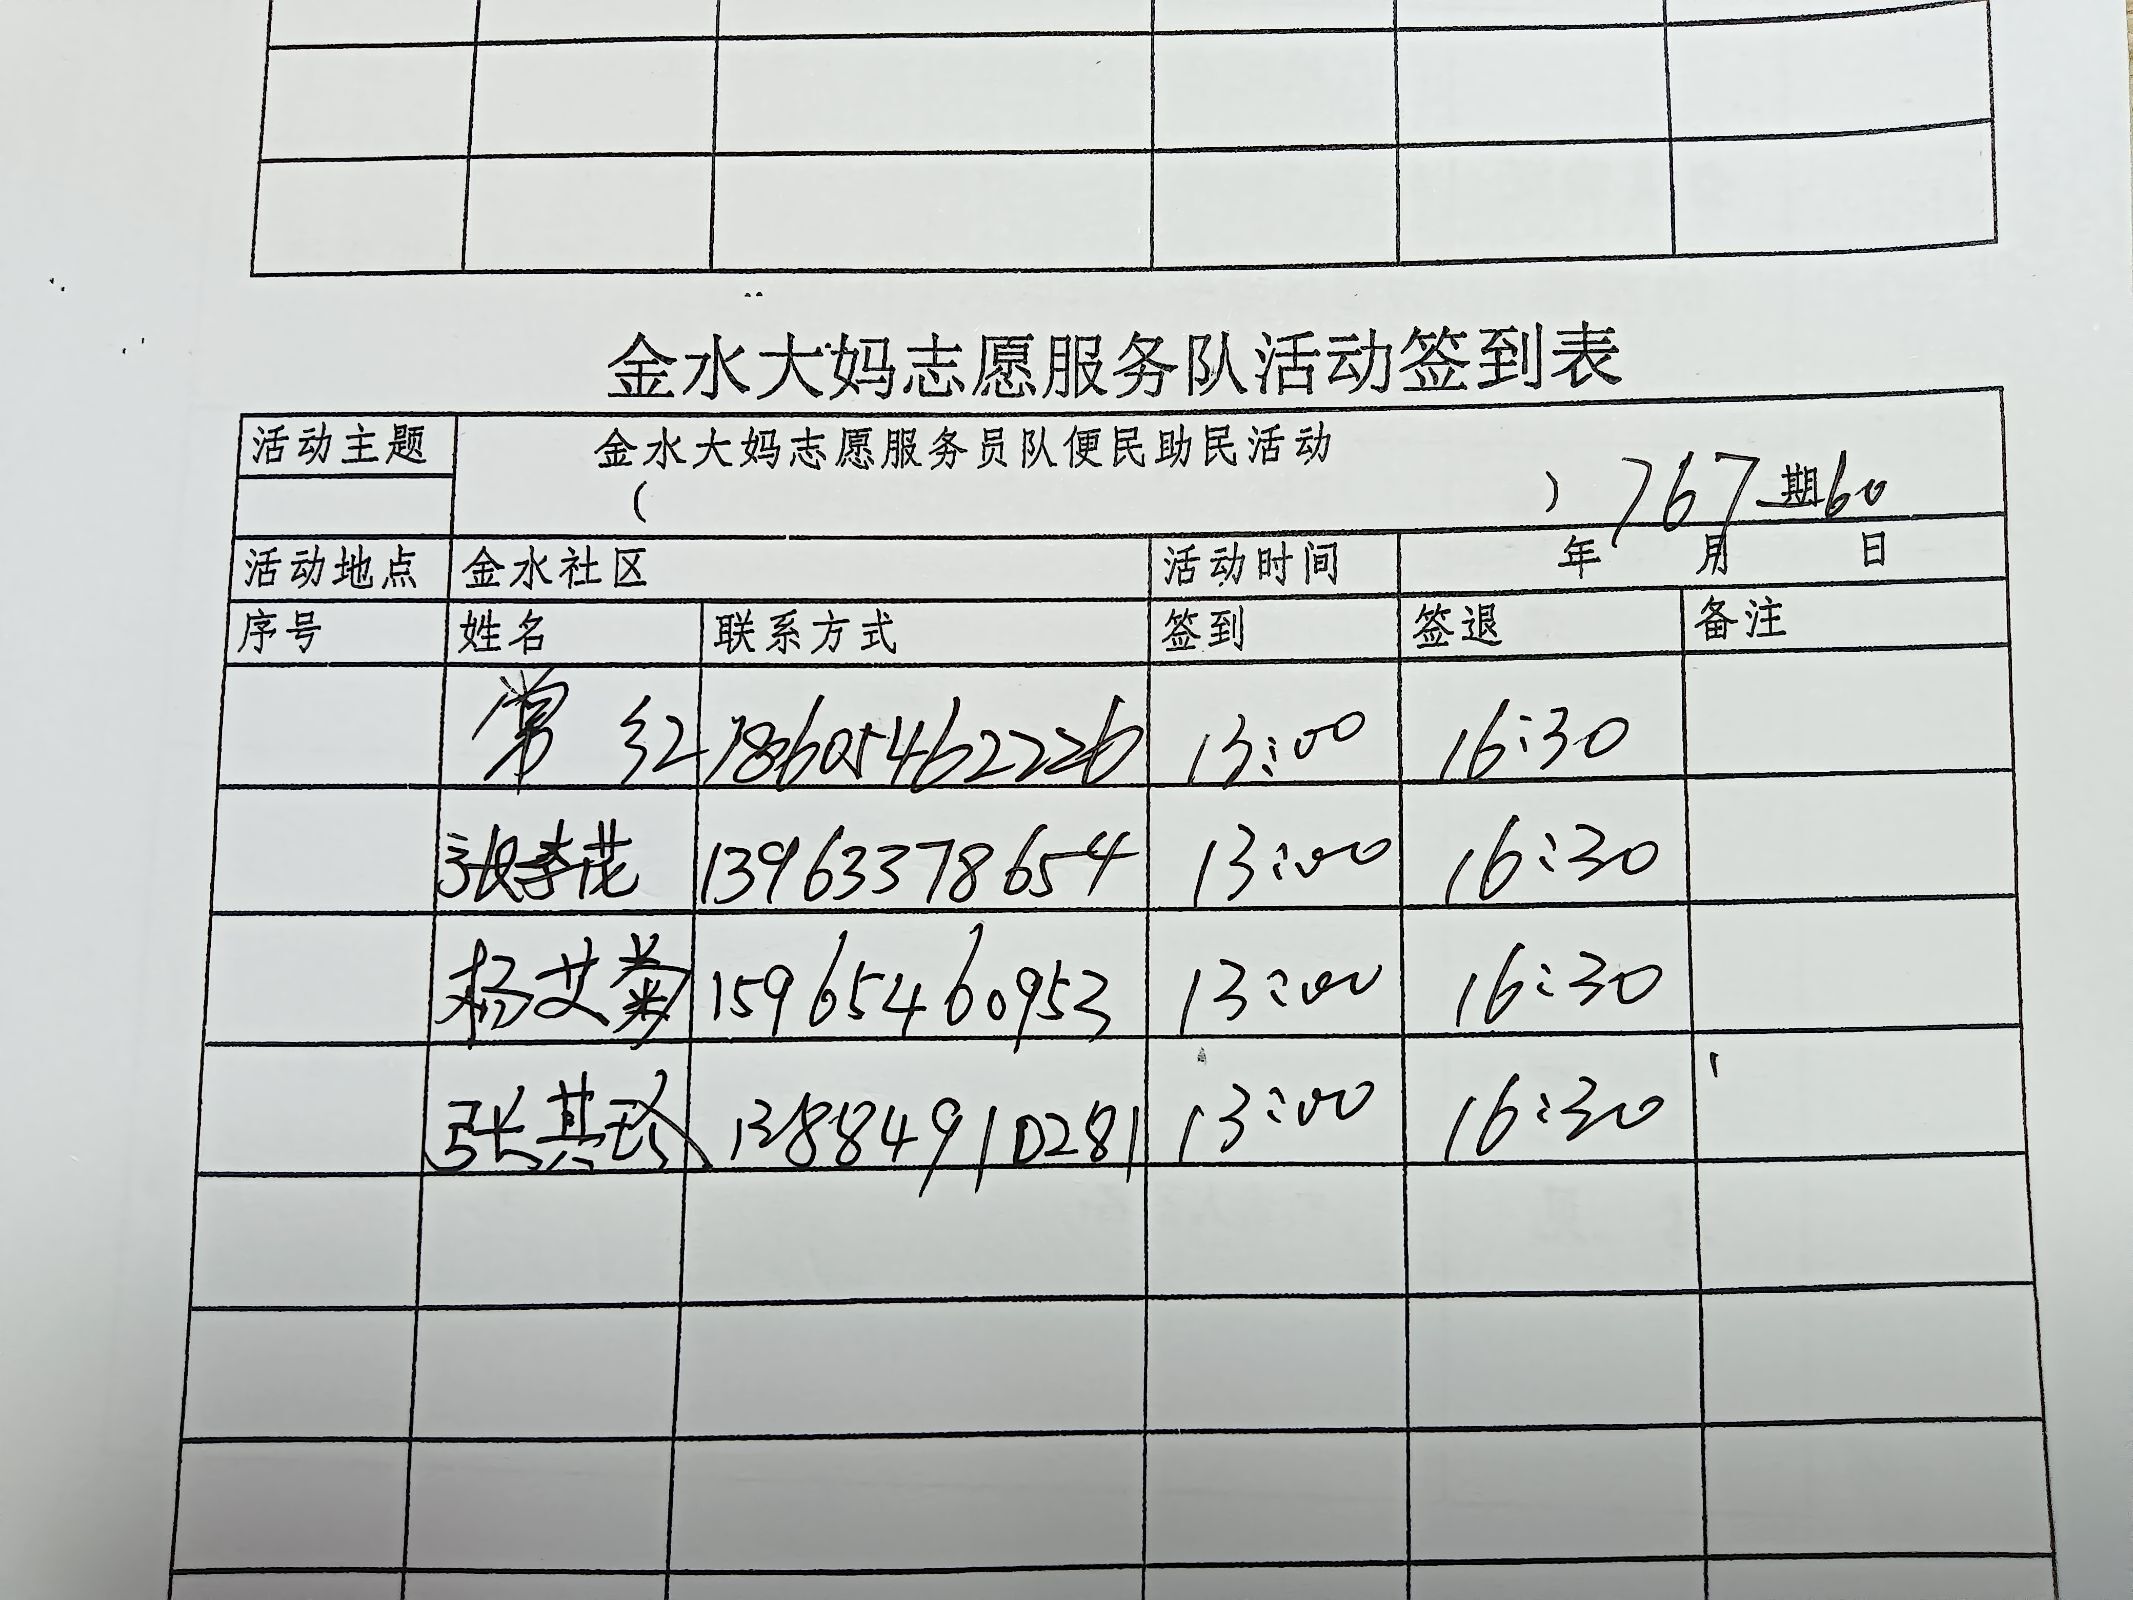 金水大妈志愿服务队活动签到表
活动主题 金水大妈志愿服务员队便民助民活动
( ) 767期60
活动地点 金水社区 活动时间 年 月 日
序号 姓名 联系方式 签到 签退 备注
常红 18605462226 13:00 16:30
张李花 13963378654 13:00 16:30
杨艾菊 15965460953 13:00 16:30
张其 13884910281 13:00 16:30